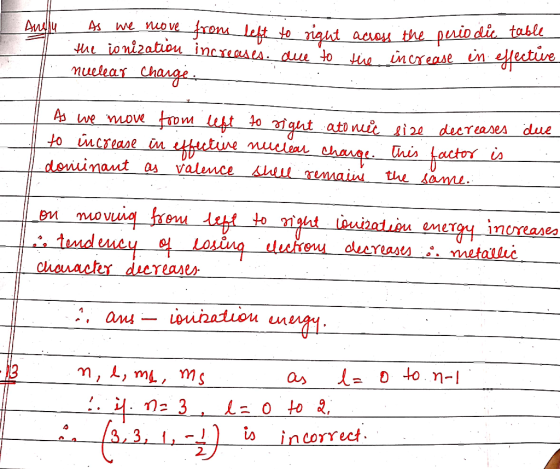 Ans/4 As we move from left to right across the periodic table
the ionization increases. due to the increase in effective
nuclear charge.
As we move from left to right atomic size decreases due
to increase in effective nuclear charge. This factor is
dominant as valence shell remains the same.
on moving from left to right ionization energy increases
∴ tendency of losing electrons decreases ∴ metallic
character decreases.
∴ ans — ionization energy.
13 n, l, ml, ms as l = 0 to n-1
∴ if n = 3, l = 0 to 2.
∴ (3, 3, 1, -1/2) is incorrect.